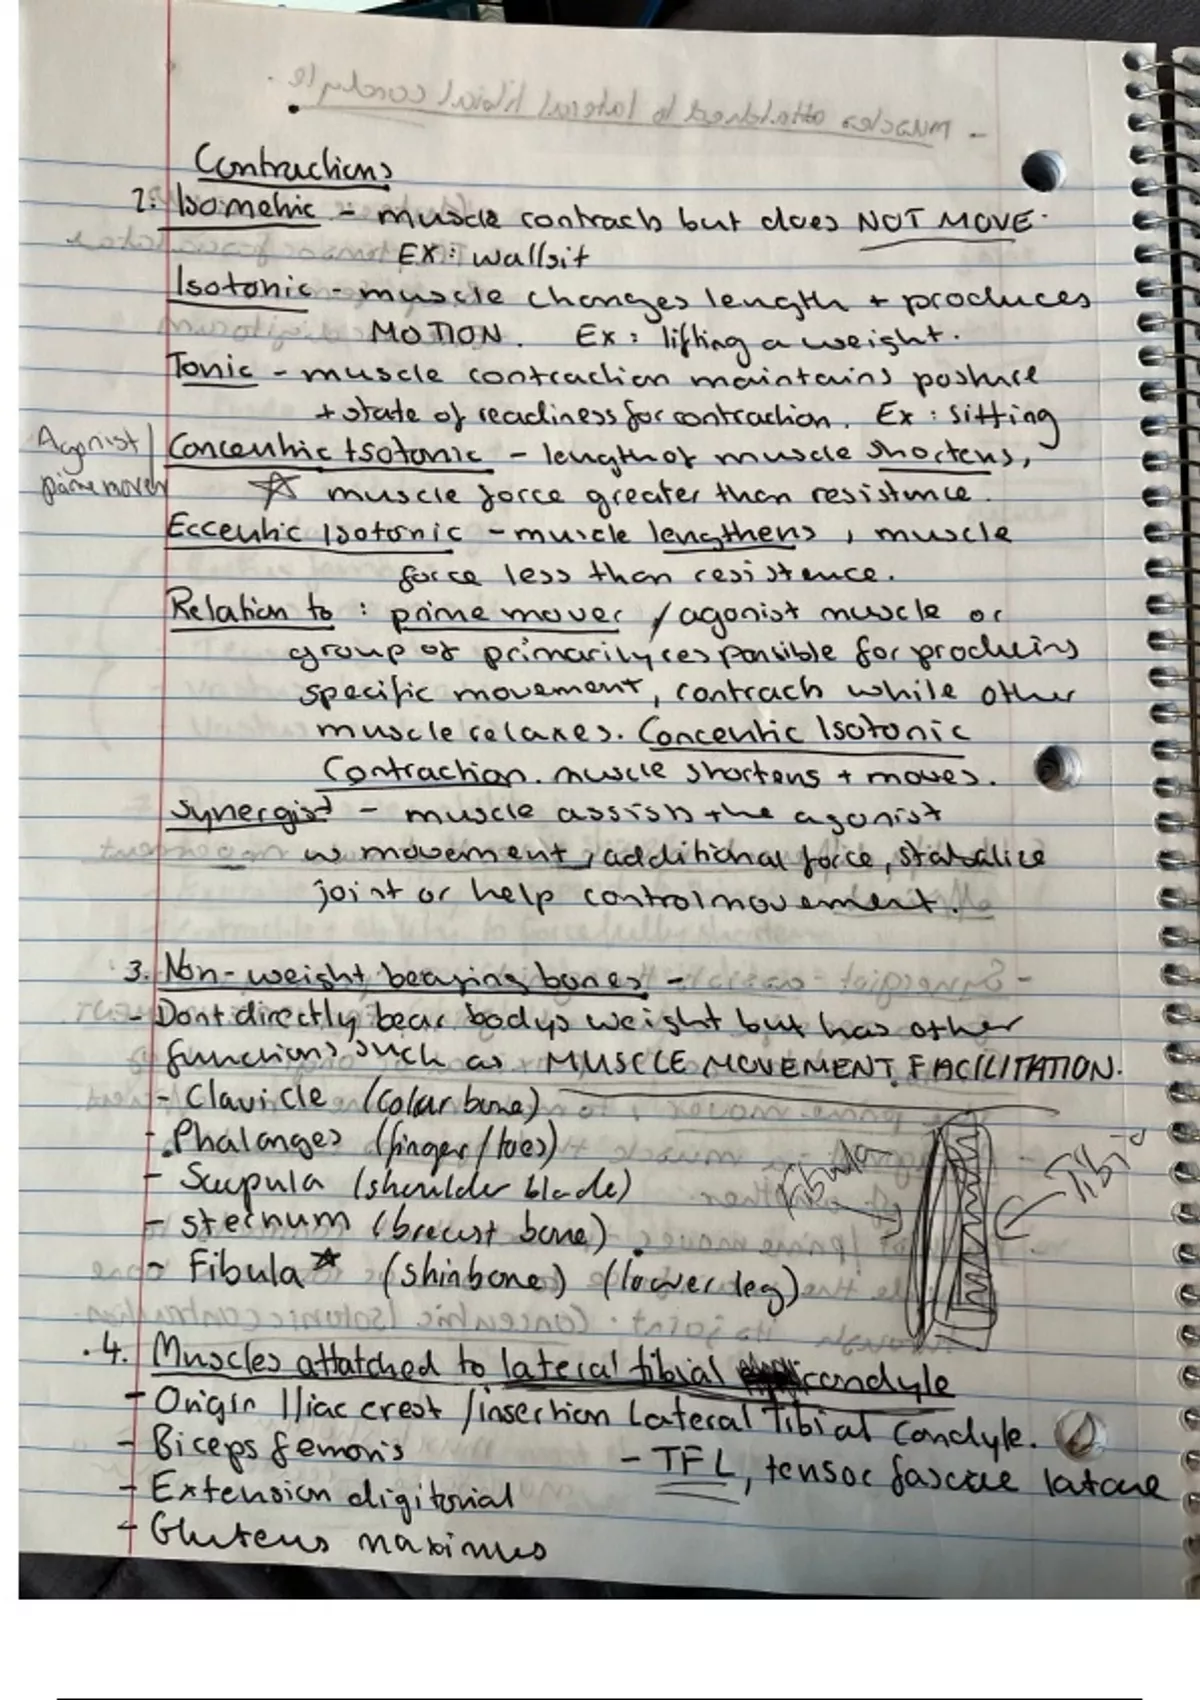 Contractions
2. Isometric - muscle contracts but does NOT MOVE.
EX: wallsit
Isotonic - muscle changes length + produces
MOTION. Ex: lifting a weight.
Tonic - muscle contraction maintains posture
+ state of readiness for contraction. Ex: sitting
Agonist / prime mover
Concentric Isotonic - length of muscle shortens,
☆ muscle force greater than resistance.
Eccentric Isotonic - muscle lengthens, muscle
force less than resistence.
Relation to: prime mover / agonist muscle or
group of primarily responsible for producing
specific movement, contracts while other
muscle relaxes. Concentric Isotonic
Contraction. muscle shortens + moves.
Synergist - muscle assists the agonist
w movement, additional force, stabalize
joint or help control movement.
3. Non-weight bearing bones -
- Dont directly bear bodys weight but has other
functions such as MUSCLE MOVEMENT FACILITATION.
- Clavicle (colar bone)
- Phalanges (finger/toes)
- Scapula (shoulder blade)
- sternum (breast bone)
- Fibula ☆ (shinbone) (lower leg)
Fibula
Tibia
4. Muscles attatched to lateral tibial condyle
- Origin Iliac crest /insertion Lateral Tibial Condyle.
- Biceps femoris
- TFL, tensor fasciae latae
- Extension digitorial
- Gluteus maximus